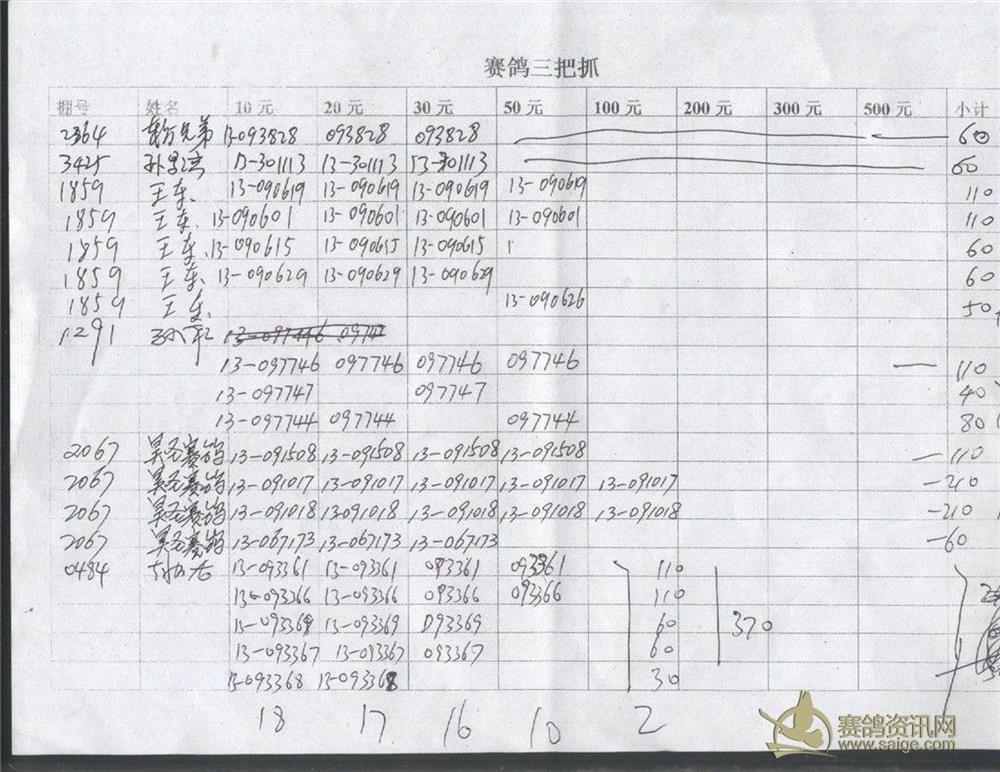 赛鸽三把抓
棚号 姓名 10元 20元 30元 50元 100元 200元 300元 500元 小计
2364 兄弟 13-093828 093828 093828 60
3425 孙 13-301113 13-301113 13-301113 60
1859 王东 13-090619 13-090619 13-090619 13-090619 110
1859 王东 13-090601 13-090601 13-090601 13-090601 110
1859 王东 13-090615 13-090615 13-090615 60
1859 王东 13-090629 13-090629 13-090629 60
1859 王东 13-090626 50
1291 孙军 13-097746 09747
13-097746 097746 097746 097746 — 110
13-097747 097747 40
13-097744 097744 097744 80
2067 赛鸽 13-091508 13-091508 13-091508 13-091508 — 110
2067 赛鸽 13-091017 13-091017 13-091017 13-091017 13-091017 -210
2067 赛鸽 13-091018 13-091018 13-091018 13-091018 13-091018 -210
2067 赛鸽 13-067173 13-067173 13-067173 -60
0484 13-093361 13-093361 093361 093361 110
13-093366 13-093366 093366 093366 110
13-093369 13-093369 093369 60 370
13-093367 13-093367 093367 60
13-093368 13-093368 30
18 17 16 10 2
赛鸽资讯网
www.saige.com